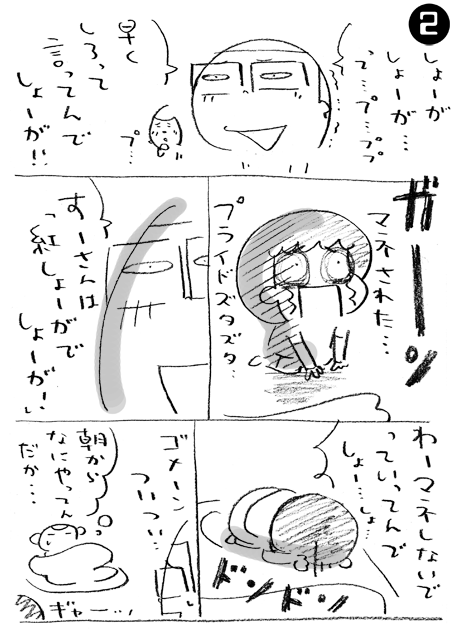 2
しょーが
しょーが…
って…プ…ププ
早く
しろって
言ってんで
しょーが!!
プ…
ガーーン
マネされた…
プライドズタズタ…
すーさんは
「紅しょーがで
しょーが!」
わーマネしないで
っていってんで
しょー…しょ…
ドンドン
ゴメーン
ついつい…
朝から
なにやってん
だか…
ギャー…